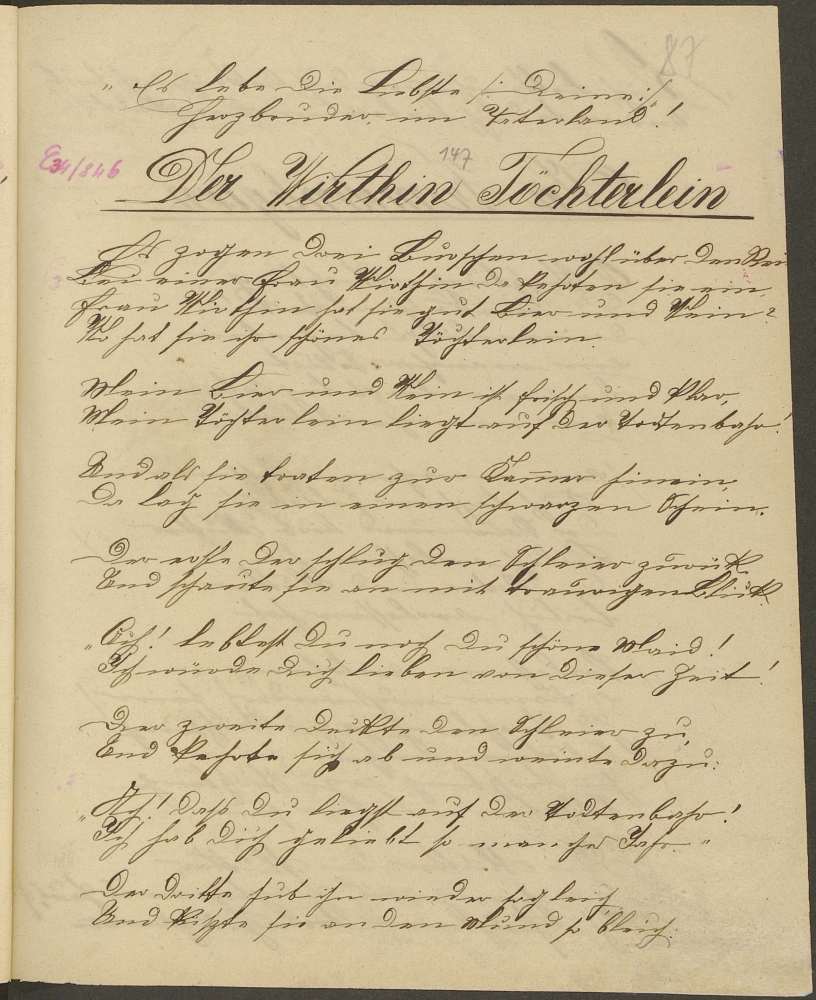 87
„Es lebe die Liebste /: Deine :/
Herzbruder, im Vaterland!
147
E34/846
Der Wirthin Töchterlein
Es zogen drei Burschen wohl über den Rhei
Bei einer Frau Wirthin da kehrten sie ein,
Frau Wirthin hat sie gut Bier und Wein?
Wo hat sie ihr schönes Töchterlein.
Mein Bier und Wein ist frisch und klar,
Mein Töchterlein liegt auf der Todtenbahr!
Und als sie traten zur Kam̄er hinein,
Da lag sie in einen schwarzen Schrein.
Der erste der schlug den Schleier zurük
Und schaute sie an mit traurigen Blük.
„Ach! lebtest du noch du schöne Maid!
Ich würde dich lieben von dieser Zeit!
Der zweite dekte den Schleier zu,
Und kehrte sich ab und weinte dazu:
„Ach! daß du liegst auf der Todtenbahr!
Ich hab dich geliebt so manches Jahr."
Der dritte hub ihn wieder sogleich
Und küßte sie an den Mund so bleich: